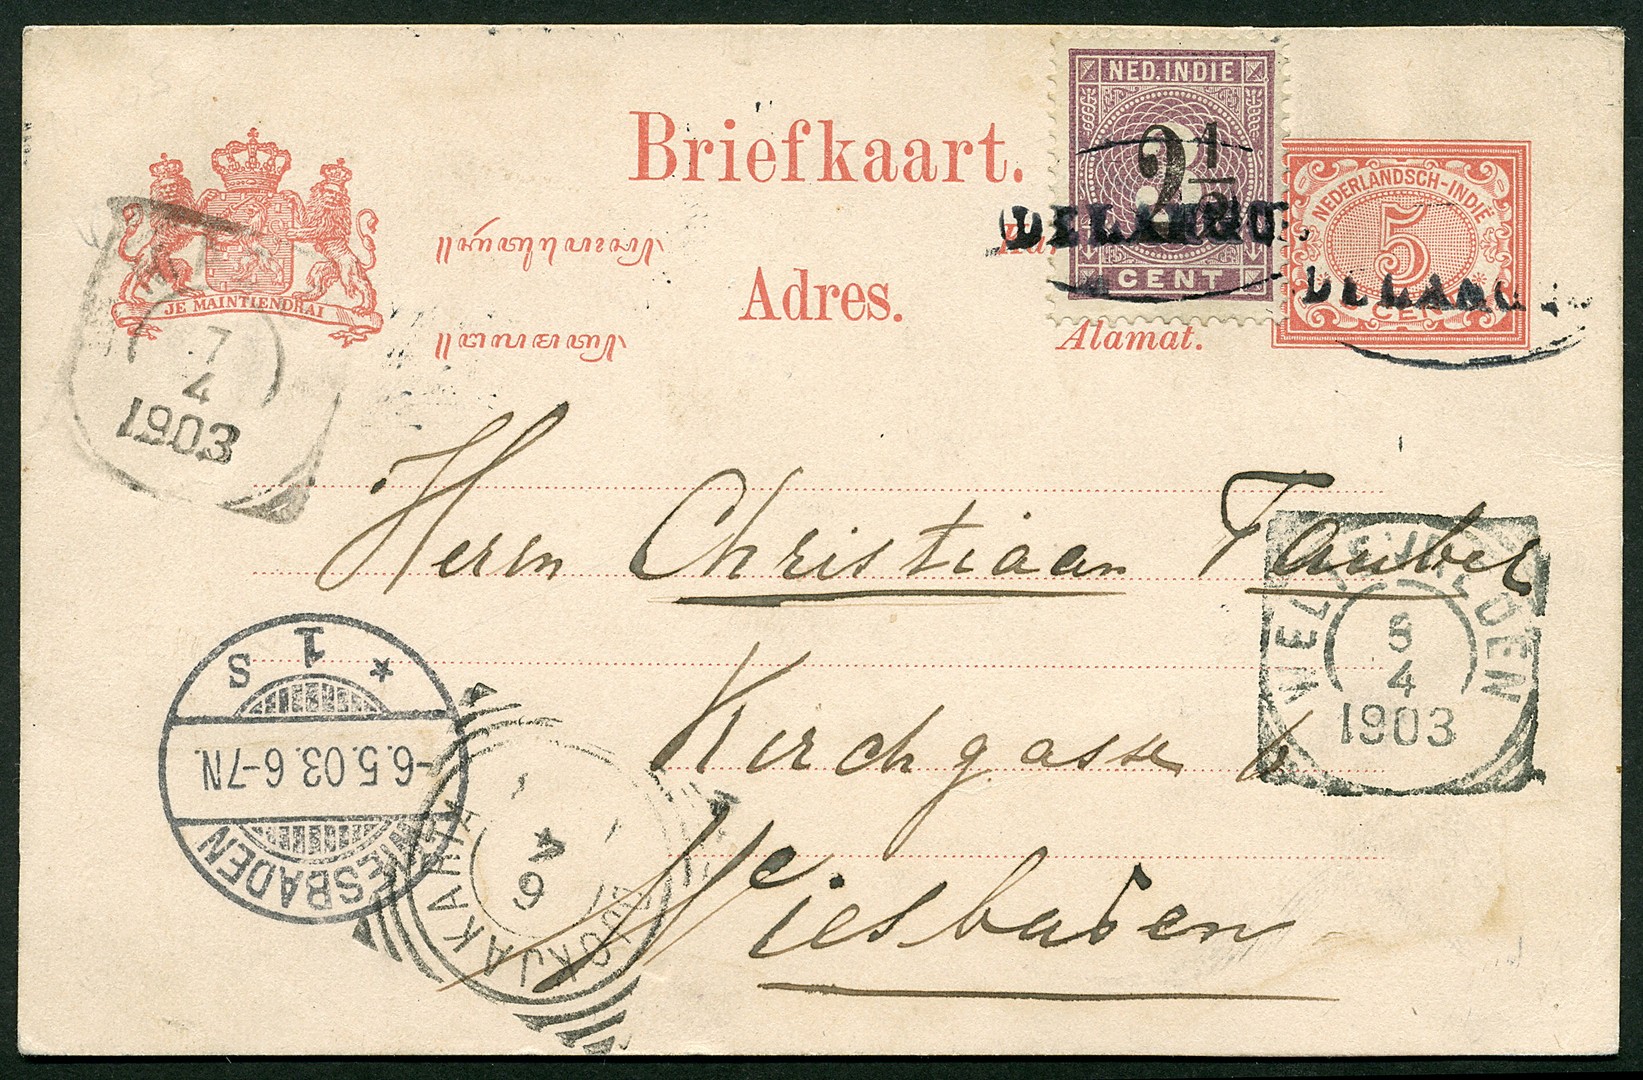 Briefkaart.
Adres.
Alamat.
JE MAINTIENDRAI
NED. INDIE
2 1/2
CENT
NEDERLANDSCH-INDIË
5
CENT
7
4
1903
Herrn Christiaan Tauber
Kirchgasse 6
Wiesbaden
WELTEVREDEN
4
1903
WIESBADEN
-6.5.03.6-7N.
* 1 S
DJOKJAKARTA
6
4